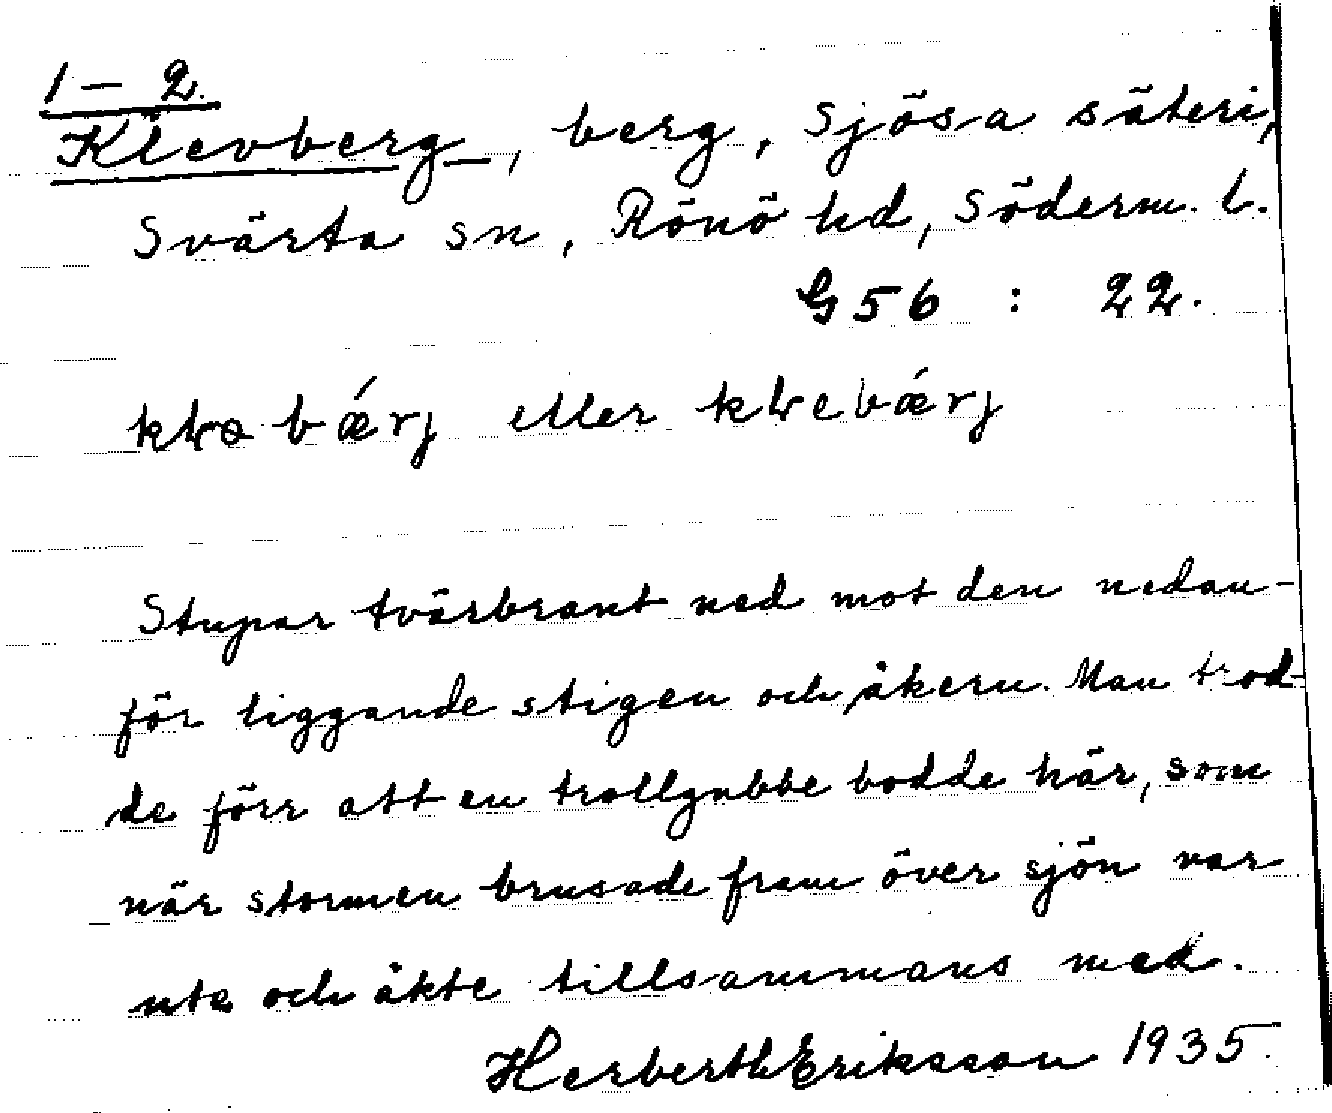 1 – 2.
Klevberg –, berg, Sjösa säteri,
Svärta sn, Rönö hd, Söderm. l.
G56 : 22.
eller
Stupar tvärbrant ned mot den nedan-
för liggande stigen och åkern. Man trod-
de förr att en trollgubbe bodde här, som
när stormen brusade fram över sjön var
ute och åkte tillsammans med.
Herberth Eriksson 1935.